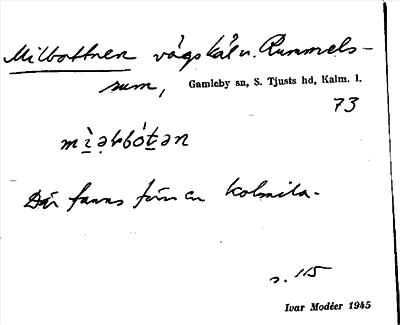 Milbottnen vägskäl v. Rummels-
rum, Gamleby sn, S. Tjusts hd, Kalm. l.
73
Där fanns förr en kolmila.
s. 115
Ivar Modéer 1945